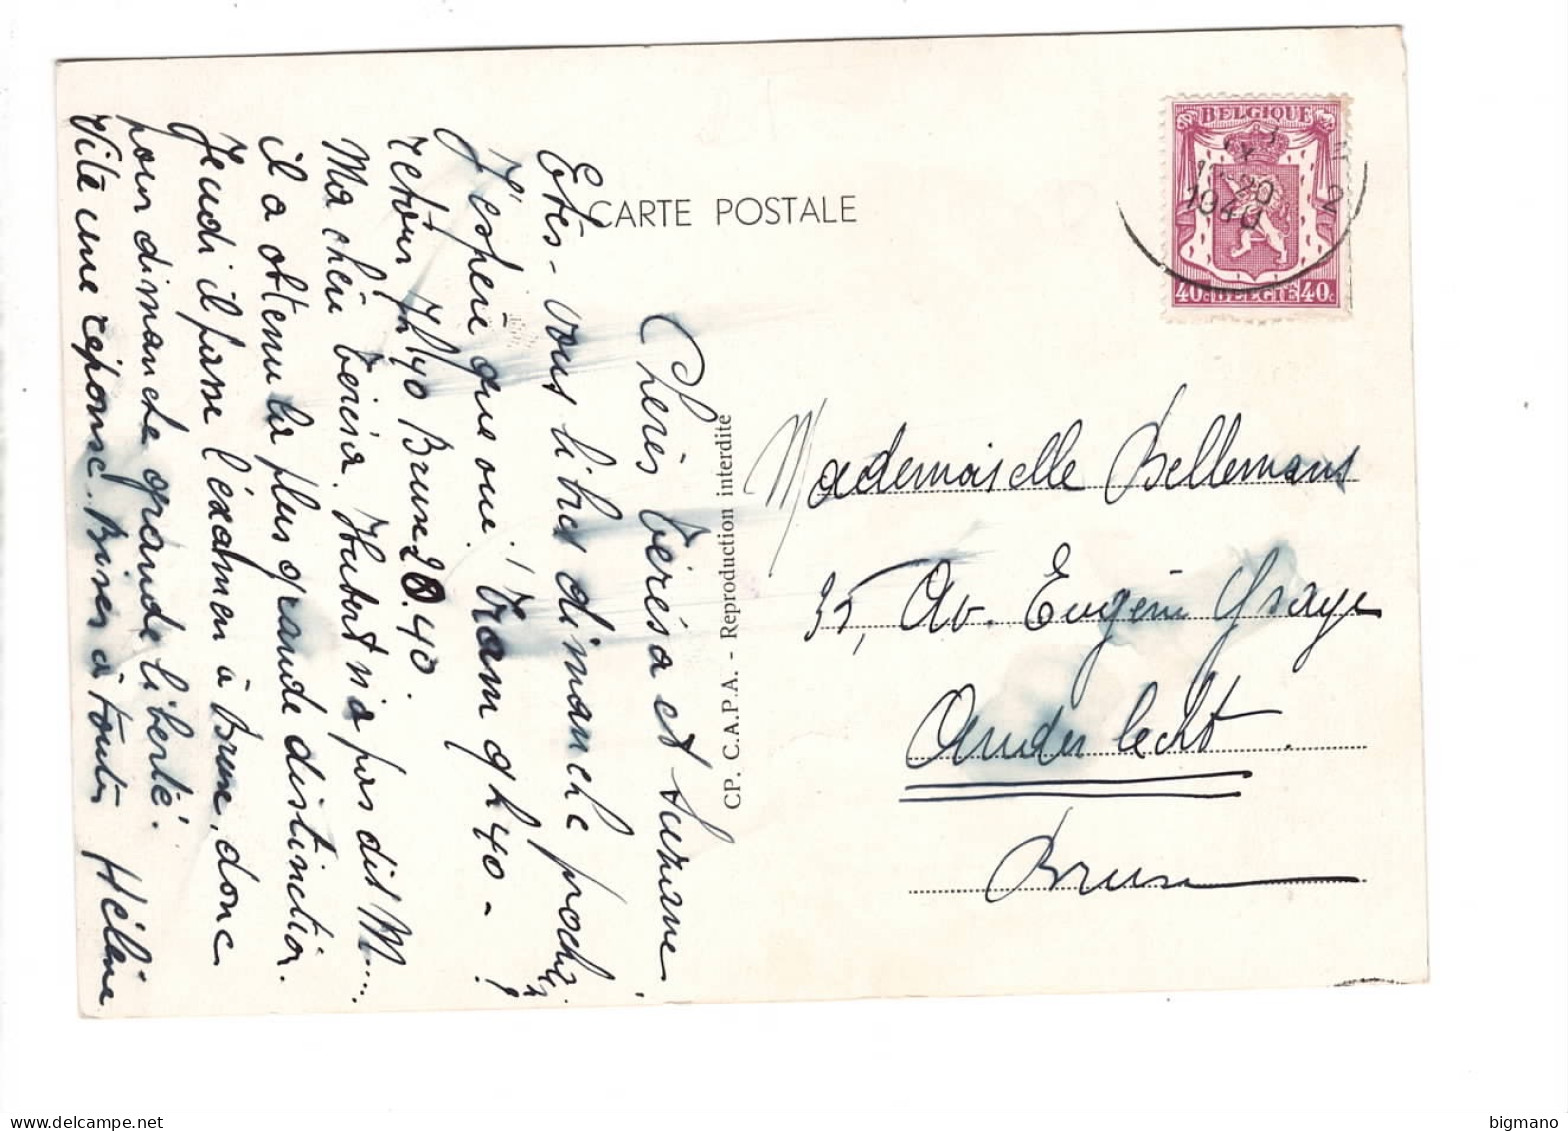 CARTE POSTALE
BELGIQUE
1940
2
40c BELGIË 40c
Chères Térésa et Suzanne
Etes-vous libres dimanche prochain
J'espère que oui! Tram 9h40 - !
retour 7h40 Brux 20.40.
Ma chère Térésa. Hubert n'a pas dit M.....
il a obtenu la plus grande distinction.
Jeudi il passe l'éxamen à Brux, donc
pour dimanche grande liberté.
Vite une réponse. Bises à toutes Hélène
CP. C.A.P.A. - Reproduction interdite
Mademoiselle Bellemans
35, Av. Eugène Ysaye
Anderlecht
Brux
bigmano